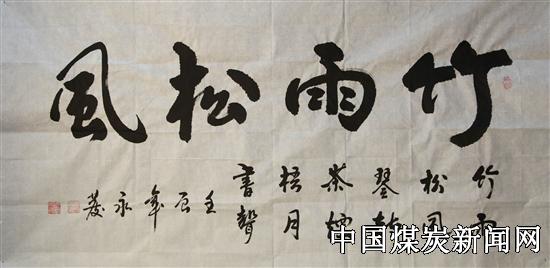 竹雨松風
竹雨
松風
琴韵
茶煙
梧月
書聲
壬辰年永
中国煤炭新闻网